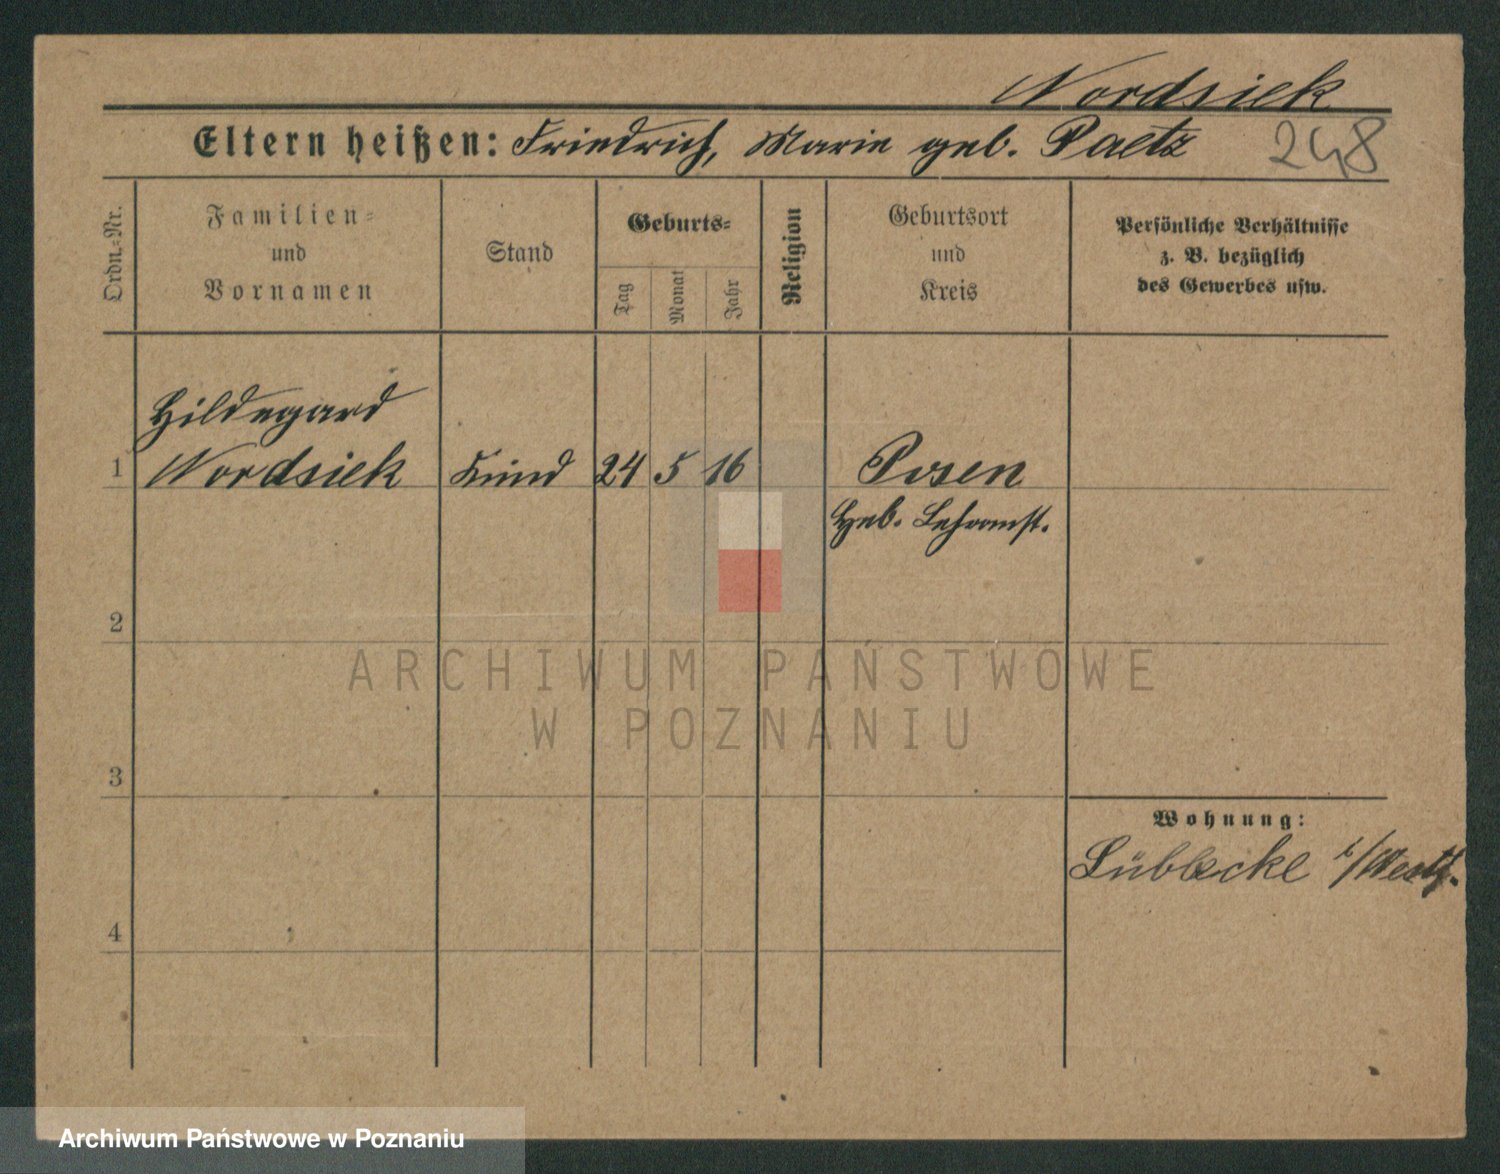 Nordsiek
Eltern heißen: Friedrich, Marie geb. Paetz 248
Ordn.-Nr.
Familien-
und
Vornamen
Stand
Geburts-
Tag
Monat
Jahr
Religion
Geburtsort
und
Kreis
Persönliche Verhältnisse
z. B. bezüglich
des Gewerbes usw.
Hildegard
1 Nordsiek Kind 24 5 16 Posen
Heb. Lehranst.
2
ARCHIWUM PAŃSTWOWE
W POZNANIU
3
Wohnung:
Lübbecke i/Westf.
4
Archiwum Państwowe w Poznaniu